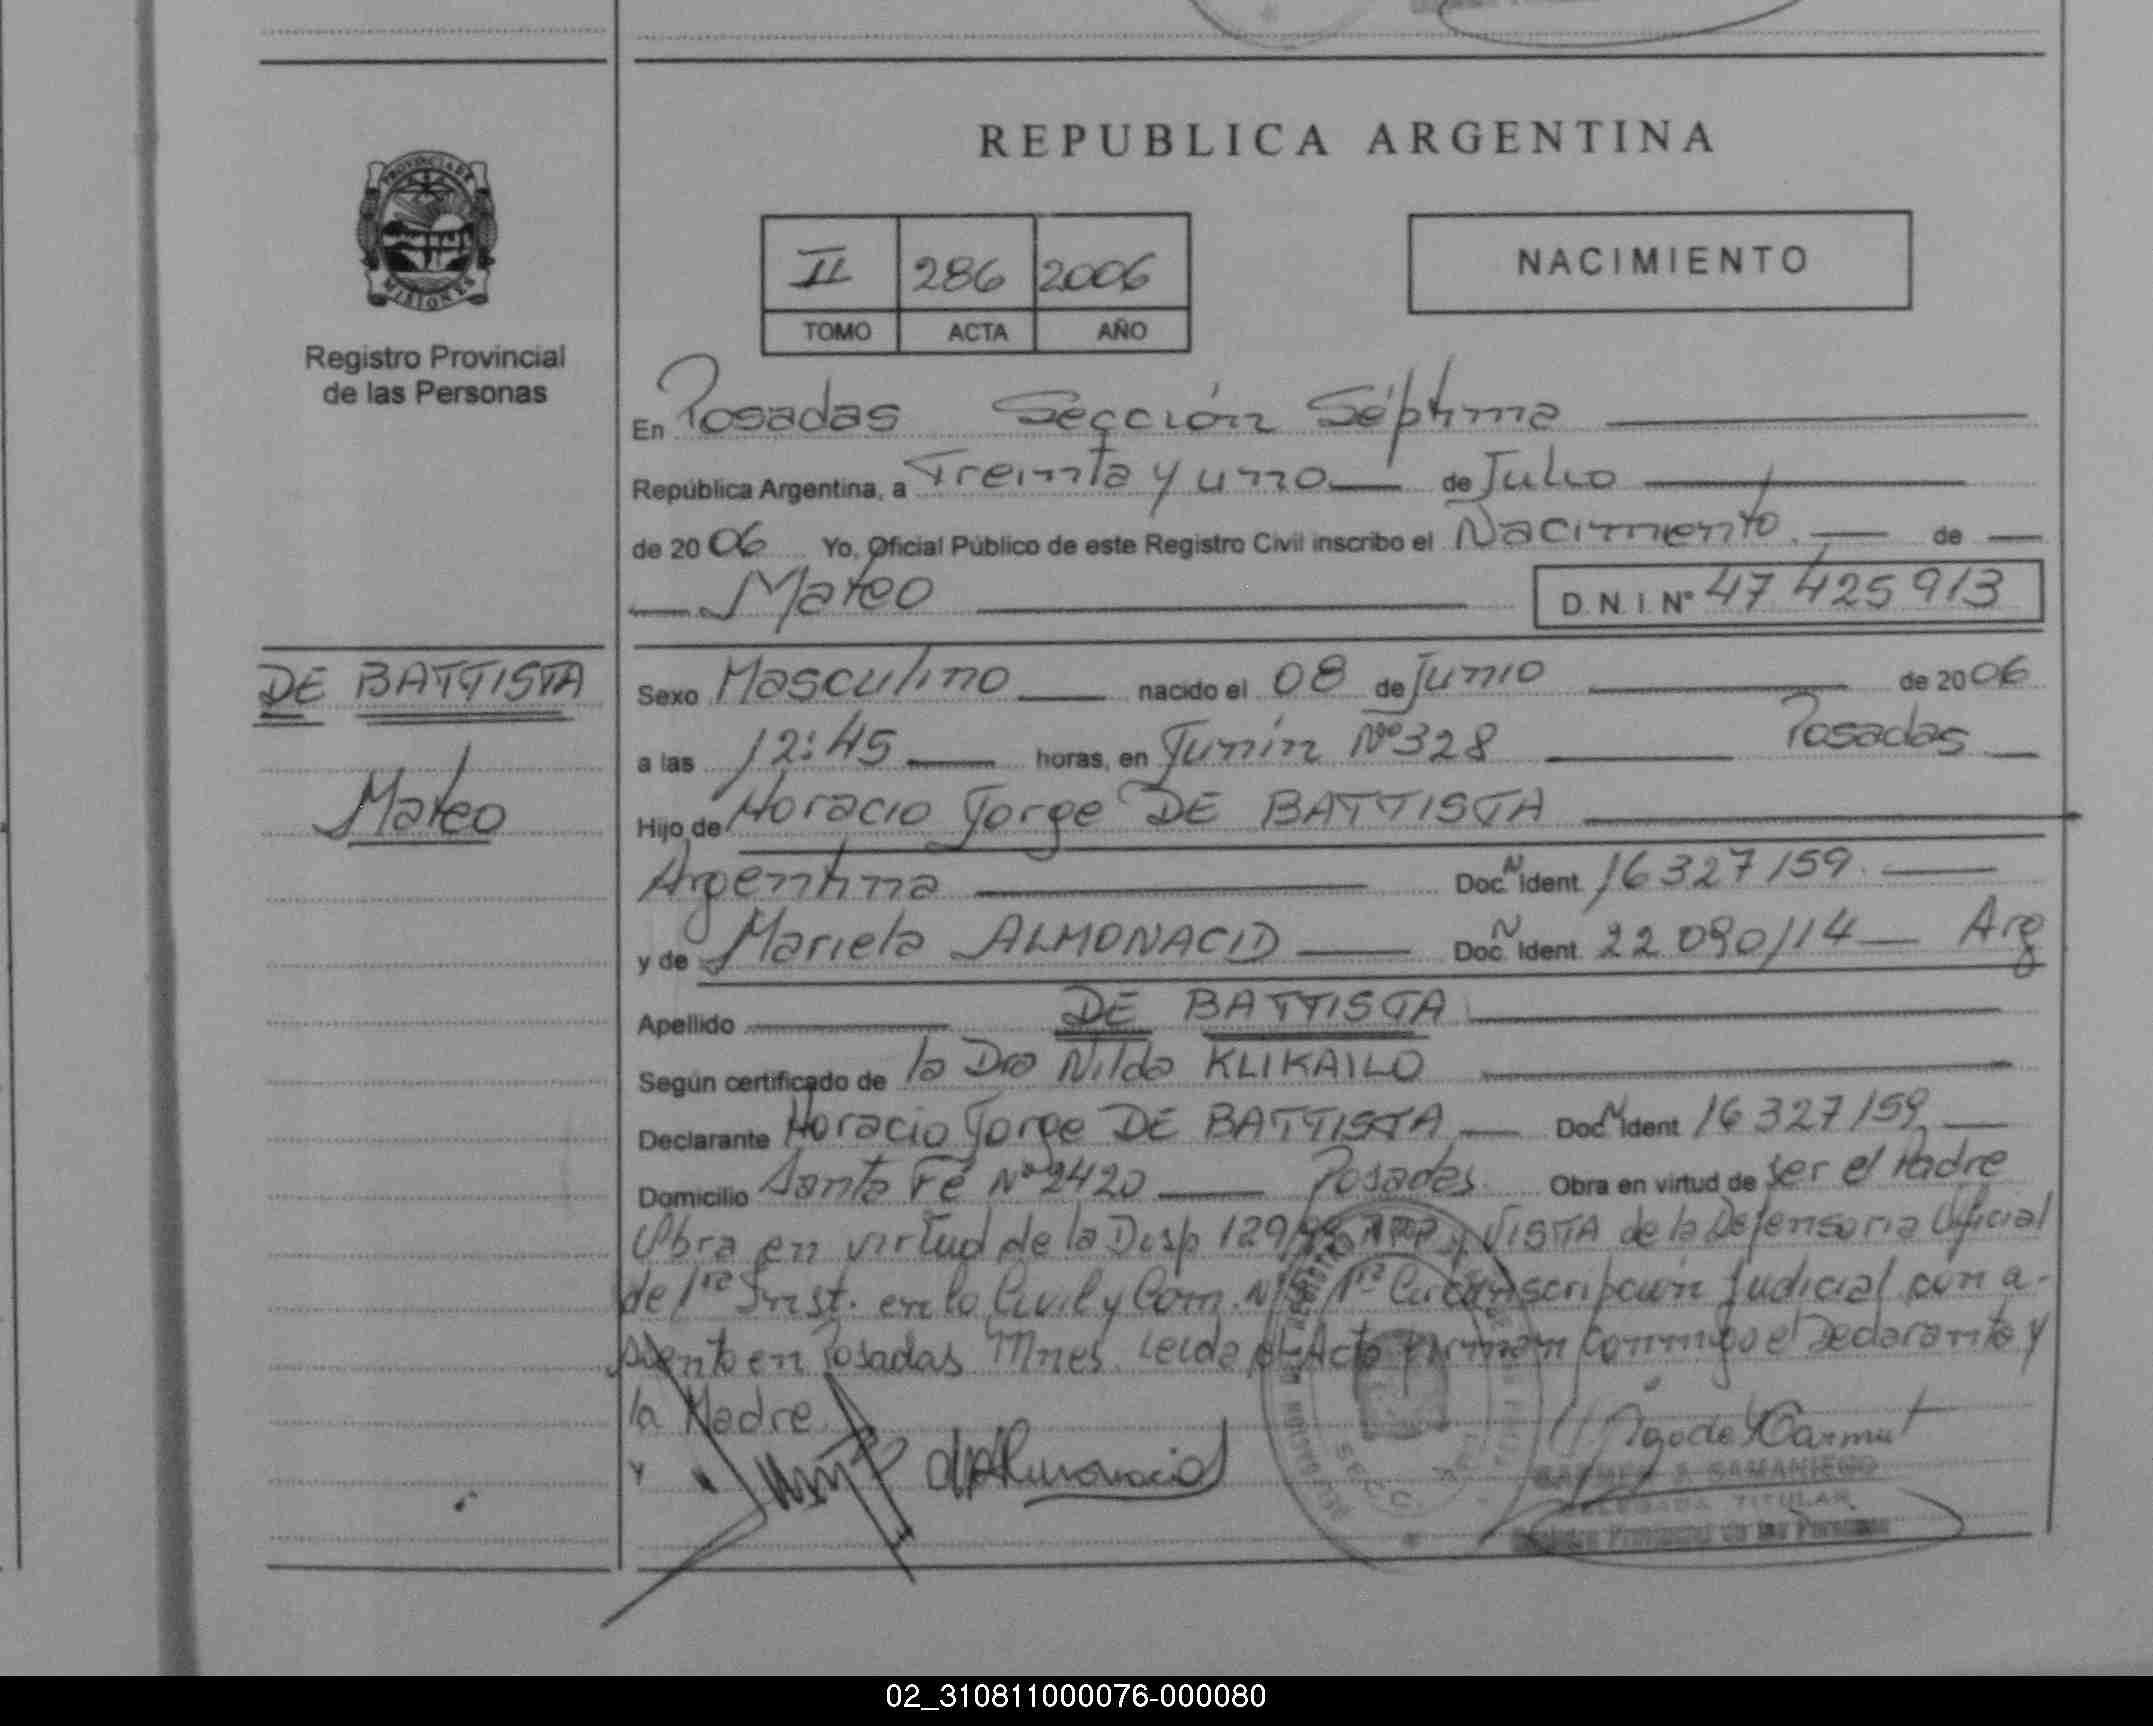 REPUBLICA ARGENTINA
PROVINCIA DE
MISIONES
Registro Provincial
de las Personas
II 286 2006
TOMO ACTA AÑO
NACIMIENTO
En Posadas Sección Séptima
República Argentina, a Treinta y uno de Julio
de 2006 Yo, Oficial Público de este Registro Civil inscribo el Nacimiento. de
Mateo D.N.I. Nº 47 425 913
DE BATTISTA
Mateo
Sexo Masculino nacido el 08 de Junio de 2006
a las 12:45 horas, en Junín Nº 328 Posadas
Hijo de Horacio Jorge DE BATTISTA
Argentina Doc. N Ident. 16 327 159.
y de Mariela ALMONACID Doc. N Ident. 22 090 114 Arg
Apellido DE BATTISTA
Según certificado de la Dra Nilda KLIKAILO
Declarante Horacio Jorge DE BATTISTA Doc. N Ident 16 327 159
Domicilio Santa Fé Nº 2420 Posadas. Obra en virtud de ser el Padre
Obra en virtud de la Disp 129/ y VISTA de la Defensoria Oficial
de 1ra Inst. en lo Civil y Com. Nº 1ra Circunscripción Judicial con a-
siento en Posadas Mnes. Leida el Acta Firman Conmigo el Declarante y
la Madre
SECC.
CARMEN SAMANIEGO
DELEGADA TITULAR
Registro Provincial de las Personas
02_310811000076-000080